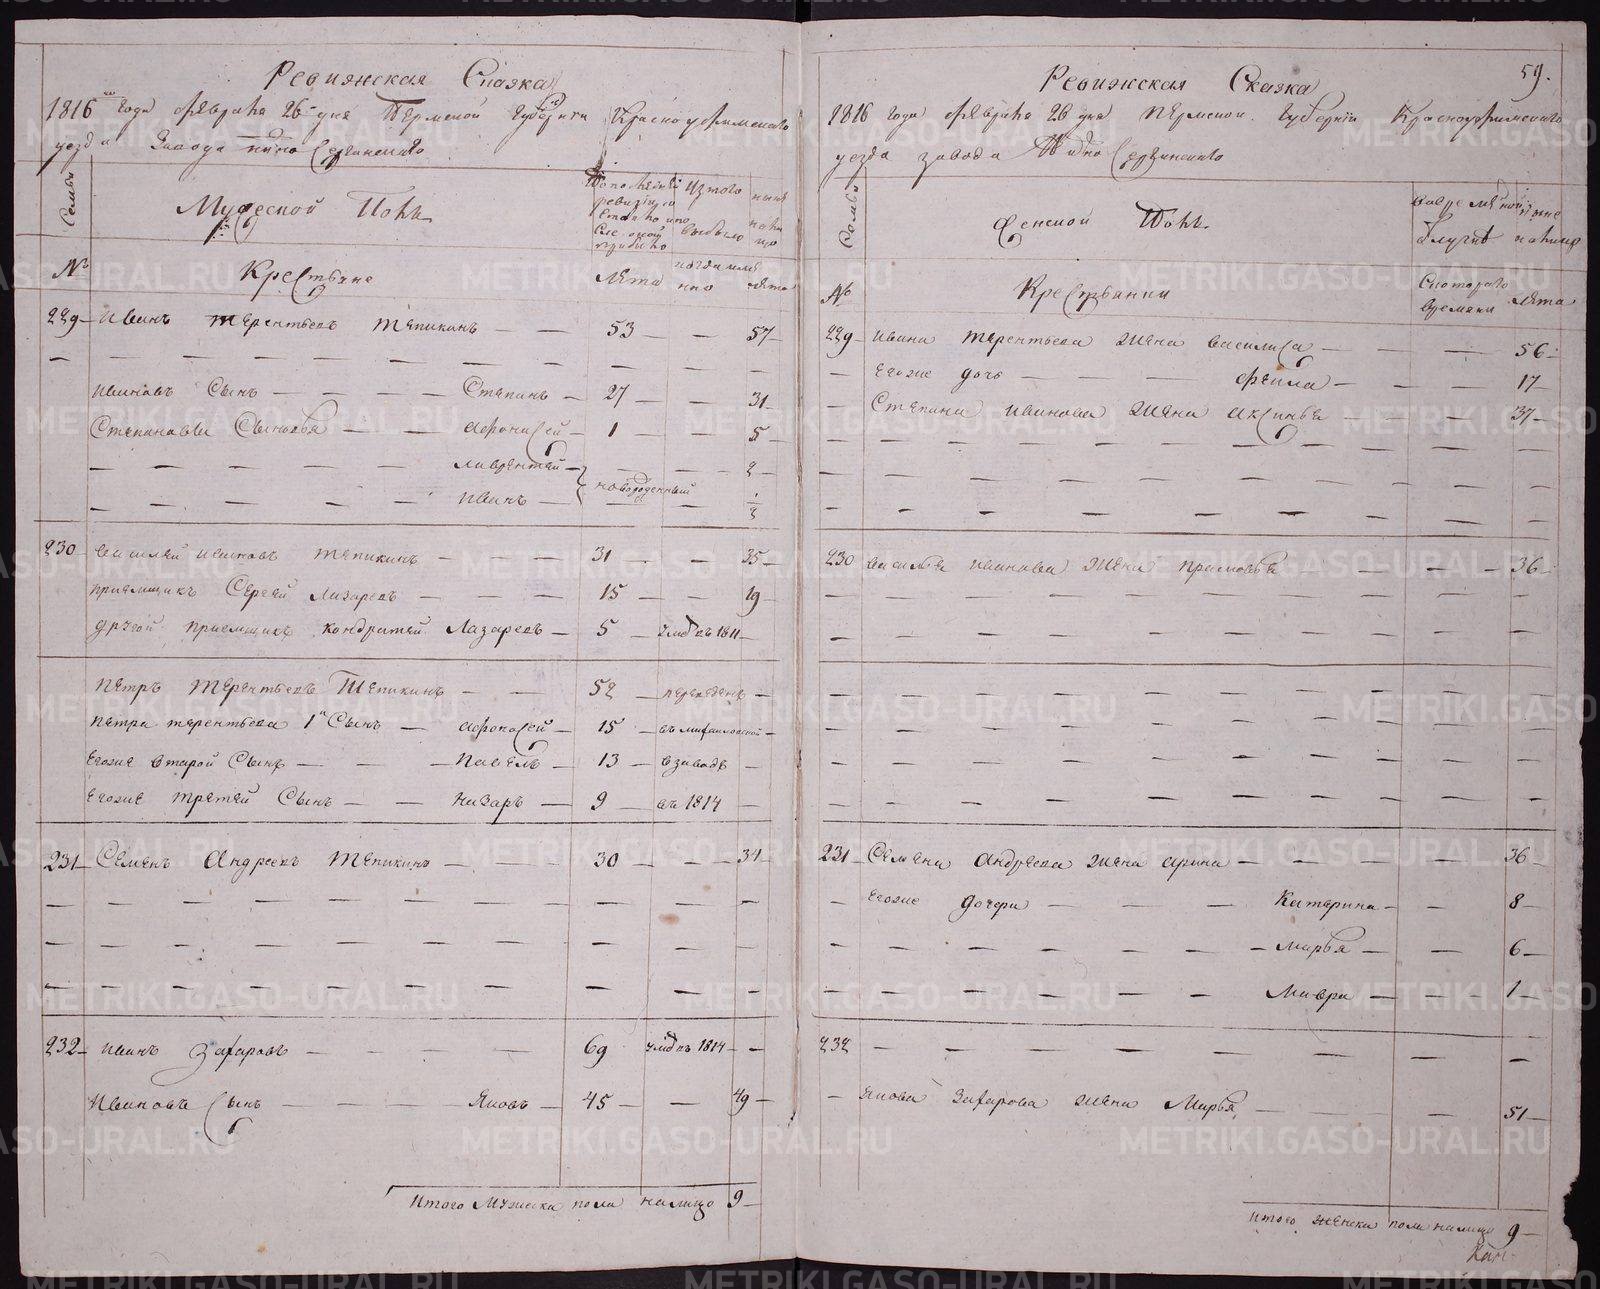 Ревижская Сказка
1816го Года Февраля 26 дня Пермской Губернии Красноуфимскаго
уезда Завода нижно Сергинскаго
Семьи
Мужеской Полъ
№
Крестьяне
Лета
229 Иванъ Терентьевъ Тепикинъ 53 57
Ивановъ Сынъ Степанъ 27 31
Степановы Сыновья Афонасей 1 5
Лаврентей 2
новорожденный
Иванъ 1/2
230 Василей Ивановъ Тепикинъ 31 35
приемщикъ Сергей Лазаревъ 15 19
другой приемщикъ Кондратей Лазаревъ 5 Умре въ 1811
Петръ Терентьевъ Тепикинъ 52 переведенъ
Петра терентьева 1й Сынъ Афонасей 15 въ михаиловской
Егоже второй Сынъ Павелъ 13 заводъ
Егоже третей Сынъ Назаръ 9 въ 1814
231 Семенъ Андреевъ Тепикинъ 30 34
232 Иванъ Захаровъ 69 умре въ 1814
Ивановъ Сынъ Яковъ 45 49
Итого Мужеска пола налицо 9
59.
Ревижская Сказка
1816 Года Февраля 26 дня Пермской Губернии Красноуфимскаго
уезда завода Нижно Сергинскаго
Семьи
Женской Полъ
№
Крестьянки
Скотораго времени
лета
229 Ивана Терентьева жена Василиса 56
Егоже дочь Фекла 17
Степана Иванова жена Аксинья 37
230 Василья Иванова жена Прасковья 36
231 Семена Андреева жена Арина 36
Егоже Дочери Катерина 8
Марья 6
Мавра 1
232
Якова Захарова жена Марья 51
Итого женска пола налицо 9
METRIKI.GASO-URAL.RU